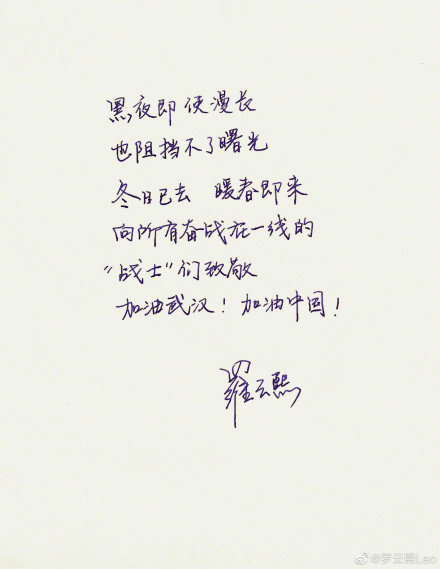 黑夜即使漫长
也阻挡不了曙光
冬日已去 暖春即来
向所有奋战在一线的
“战士”们致敬
加油武汉！加油中国！
罗云熙
@罗云熙Leo